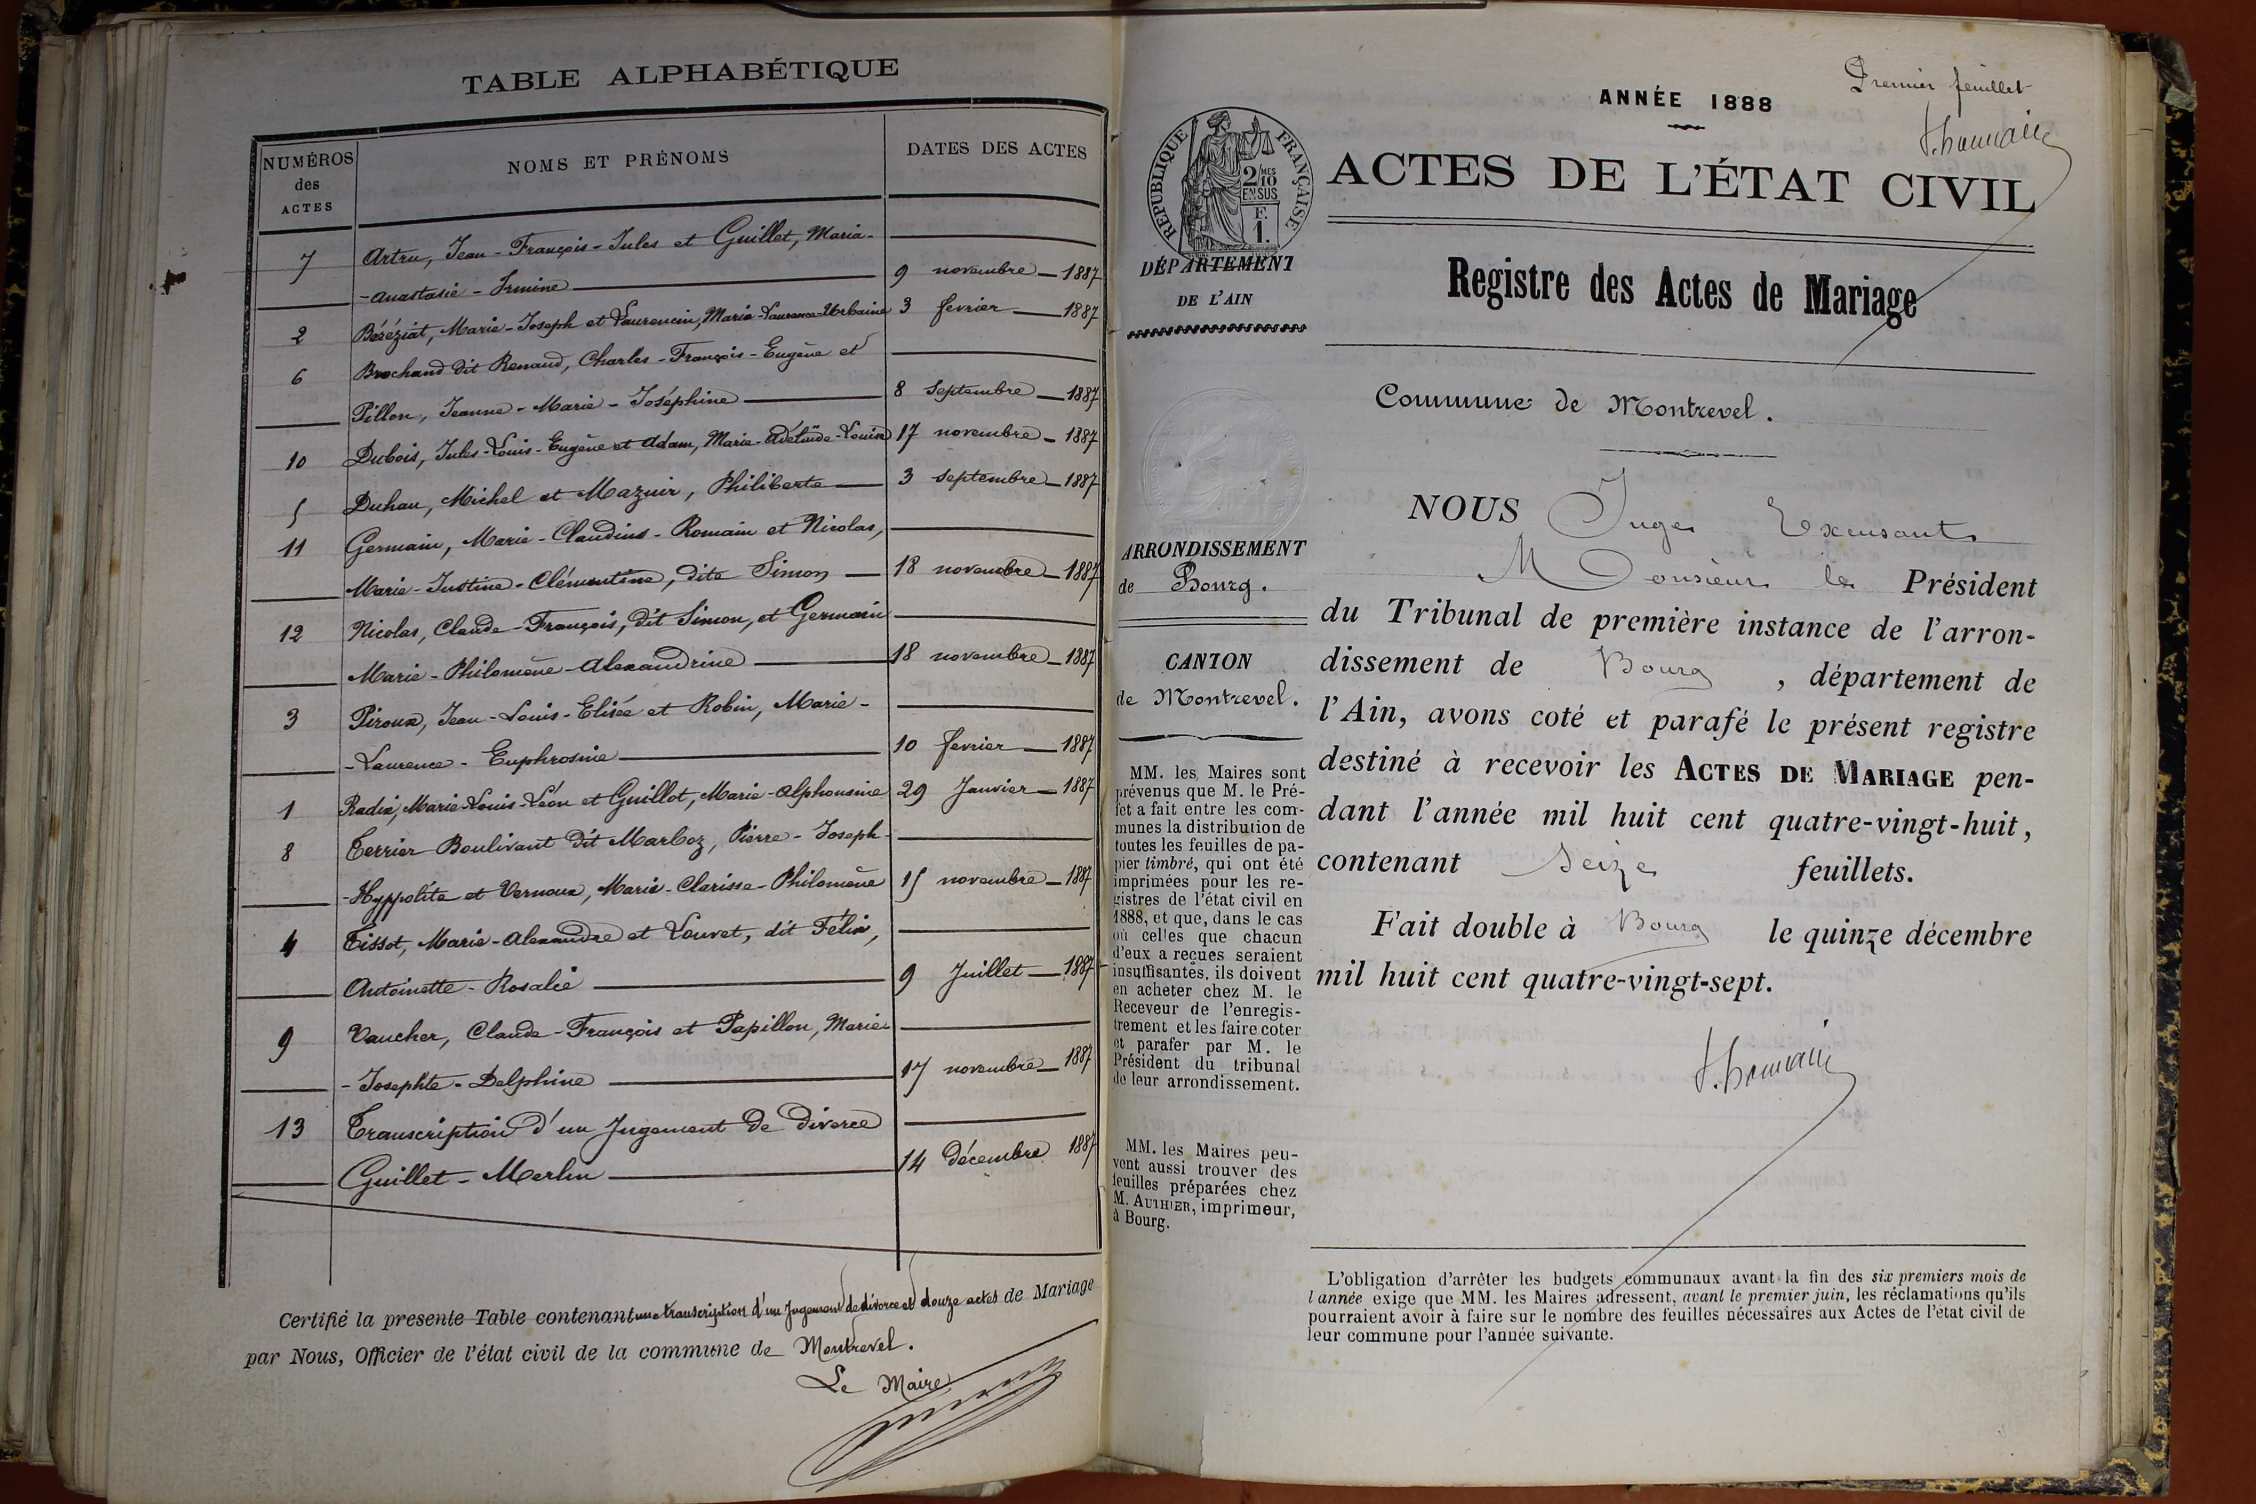 TABLE ALPHABÉTIQUE
NUMÉROS
des
ACTES
NOMS ET PRÉNOMS
DATES DES ACTES
7 Artru, Jean-François-Jules et Guillet, Maria-
-Anastasie-Irmine 9 novembre 1887
2 Béréziat, Marie-Joseph et Laurencin, Maria-Laurence-Urbaine 3 fevrier 1887
6 Brochand dit Renaud, Charles-François-Eugène et
Pillon, Jeanne-Marie-Joséphine 8 Septembre 1887
10 Dubois, Jules-Louis-Eugène et Adam, Marie-Adélaïde-Louise 17 novembre 1887
5 Duhau, Michel et Mazuir, Philiberte 3 septembre 1887
11 Germain, Marie-Claudius-Romain et Nicolas,
Marie-Justine-Clémentine, dite Simon 18 novembre 1887
12 Nicolas, Claude-François, dit Simon, et Germain
Marie-Philomène-Alexandrine 18 novembre 1887
3 Piroux, Jean-Louis-Elisée et Robin, Marie-
-Laurence-Euphrosine 10 fevrier 1887
1 Radix, Marie-Louis-Léon et Guillot, Marie-Alphonsine 29 Janvier 1887
8 Terrier Boulivant dit Marboz, Pierre-Joseph-
-Hyppolite et Vernoux, Marie-Clarisse-Philomène 15 novembre 1887
4 Tissot, Marie-Alexandre et Louvet, dit Félix,
Antoinette-Rosalie 9 Juillet 1887
9 Vaucher, Claude-François et Papillon, Marie-
-Josephte-Delphine 17 novembre 1887
13 Transcription d'un Jugement de divorce
Guillet-Merlin 14 décembre 1887
Certifié la presente Table contenant une transcription d'un Jugement de divorce et douze actes de Mariage
par Nous, Officier de l'état civil de la commune de Montrevel.
Le Maire
Premier feuillet
ANNÉE 1888
RÉPUBLIQUE FRANÇAISE
2/MES
10
EN SUS
F.
1.
ACTES DE L'ÉTAT CIVIL
Registre des Actes de Mariage
DÉPARTEMENT
DE L'AIN
Commune de Montrevel.
ARRONDISSEMENT
de Bourg.
CANTON
de Montrevel.
MM. les Maires sont
prévenus que M. le Pré-
fet a fait entre les com-
munes la distribution de
toutes les feuilles de pa-
pier timbré, qui ont été
imprimées pour les re-
gistres de l'état civil en
1888, et que, dans le cas
où celles que chacun
d'eux a reçues seraient
insuffisantes, ils doivent
en acheter chez M. le
Receveur de l'enregis-
trement et les faire coter
et parafer par M. le
Président du tribunal
de leur arrondissement.
MM. les Maires peu-
vent aussi trouver des
feuilles préparées chez
M. AUTHIER, imprimeur,
à Bourg.
NOUS Juge Excusant
Monsieur le Président
du Tribunal de première instance de l'arron-
dissement de Bourg, département de
l'Ain, avons coté et parafé le présent registre
destiné à recevoir les ACTES DE MARIAGE pen-
dant l'année mil huit cent quatre-vingt-huit,
contenant seize feuillets.
Fait double à Bourg le quinze décembre
mil huit cent quatre-vingt-sept.
L'obligation d'arrêter les budgets communaux avant la fin des six premiers mois de
l'année exige que MM. les Maires adressent, avant le premier juin, les réclamations qu'ils
pourraient avoir à faire sur le nombre des feuilles nécessaires aux Actes de l'état civil de
leur commune pour l'année suivante.